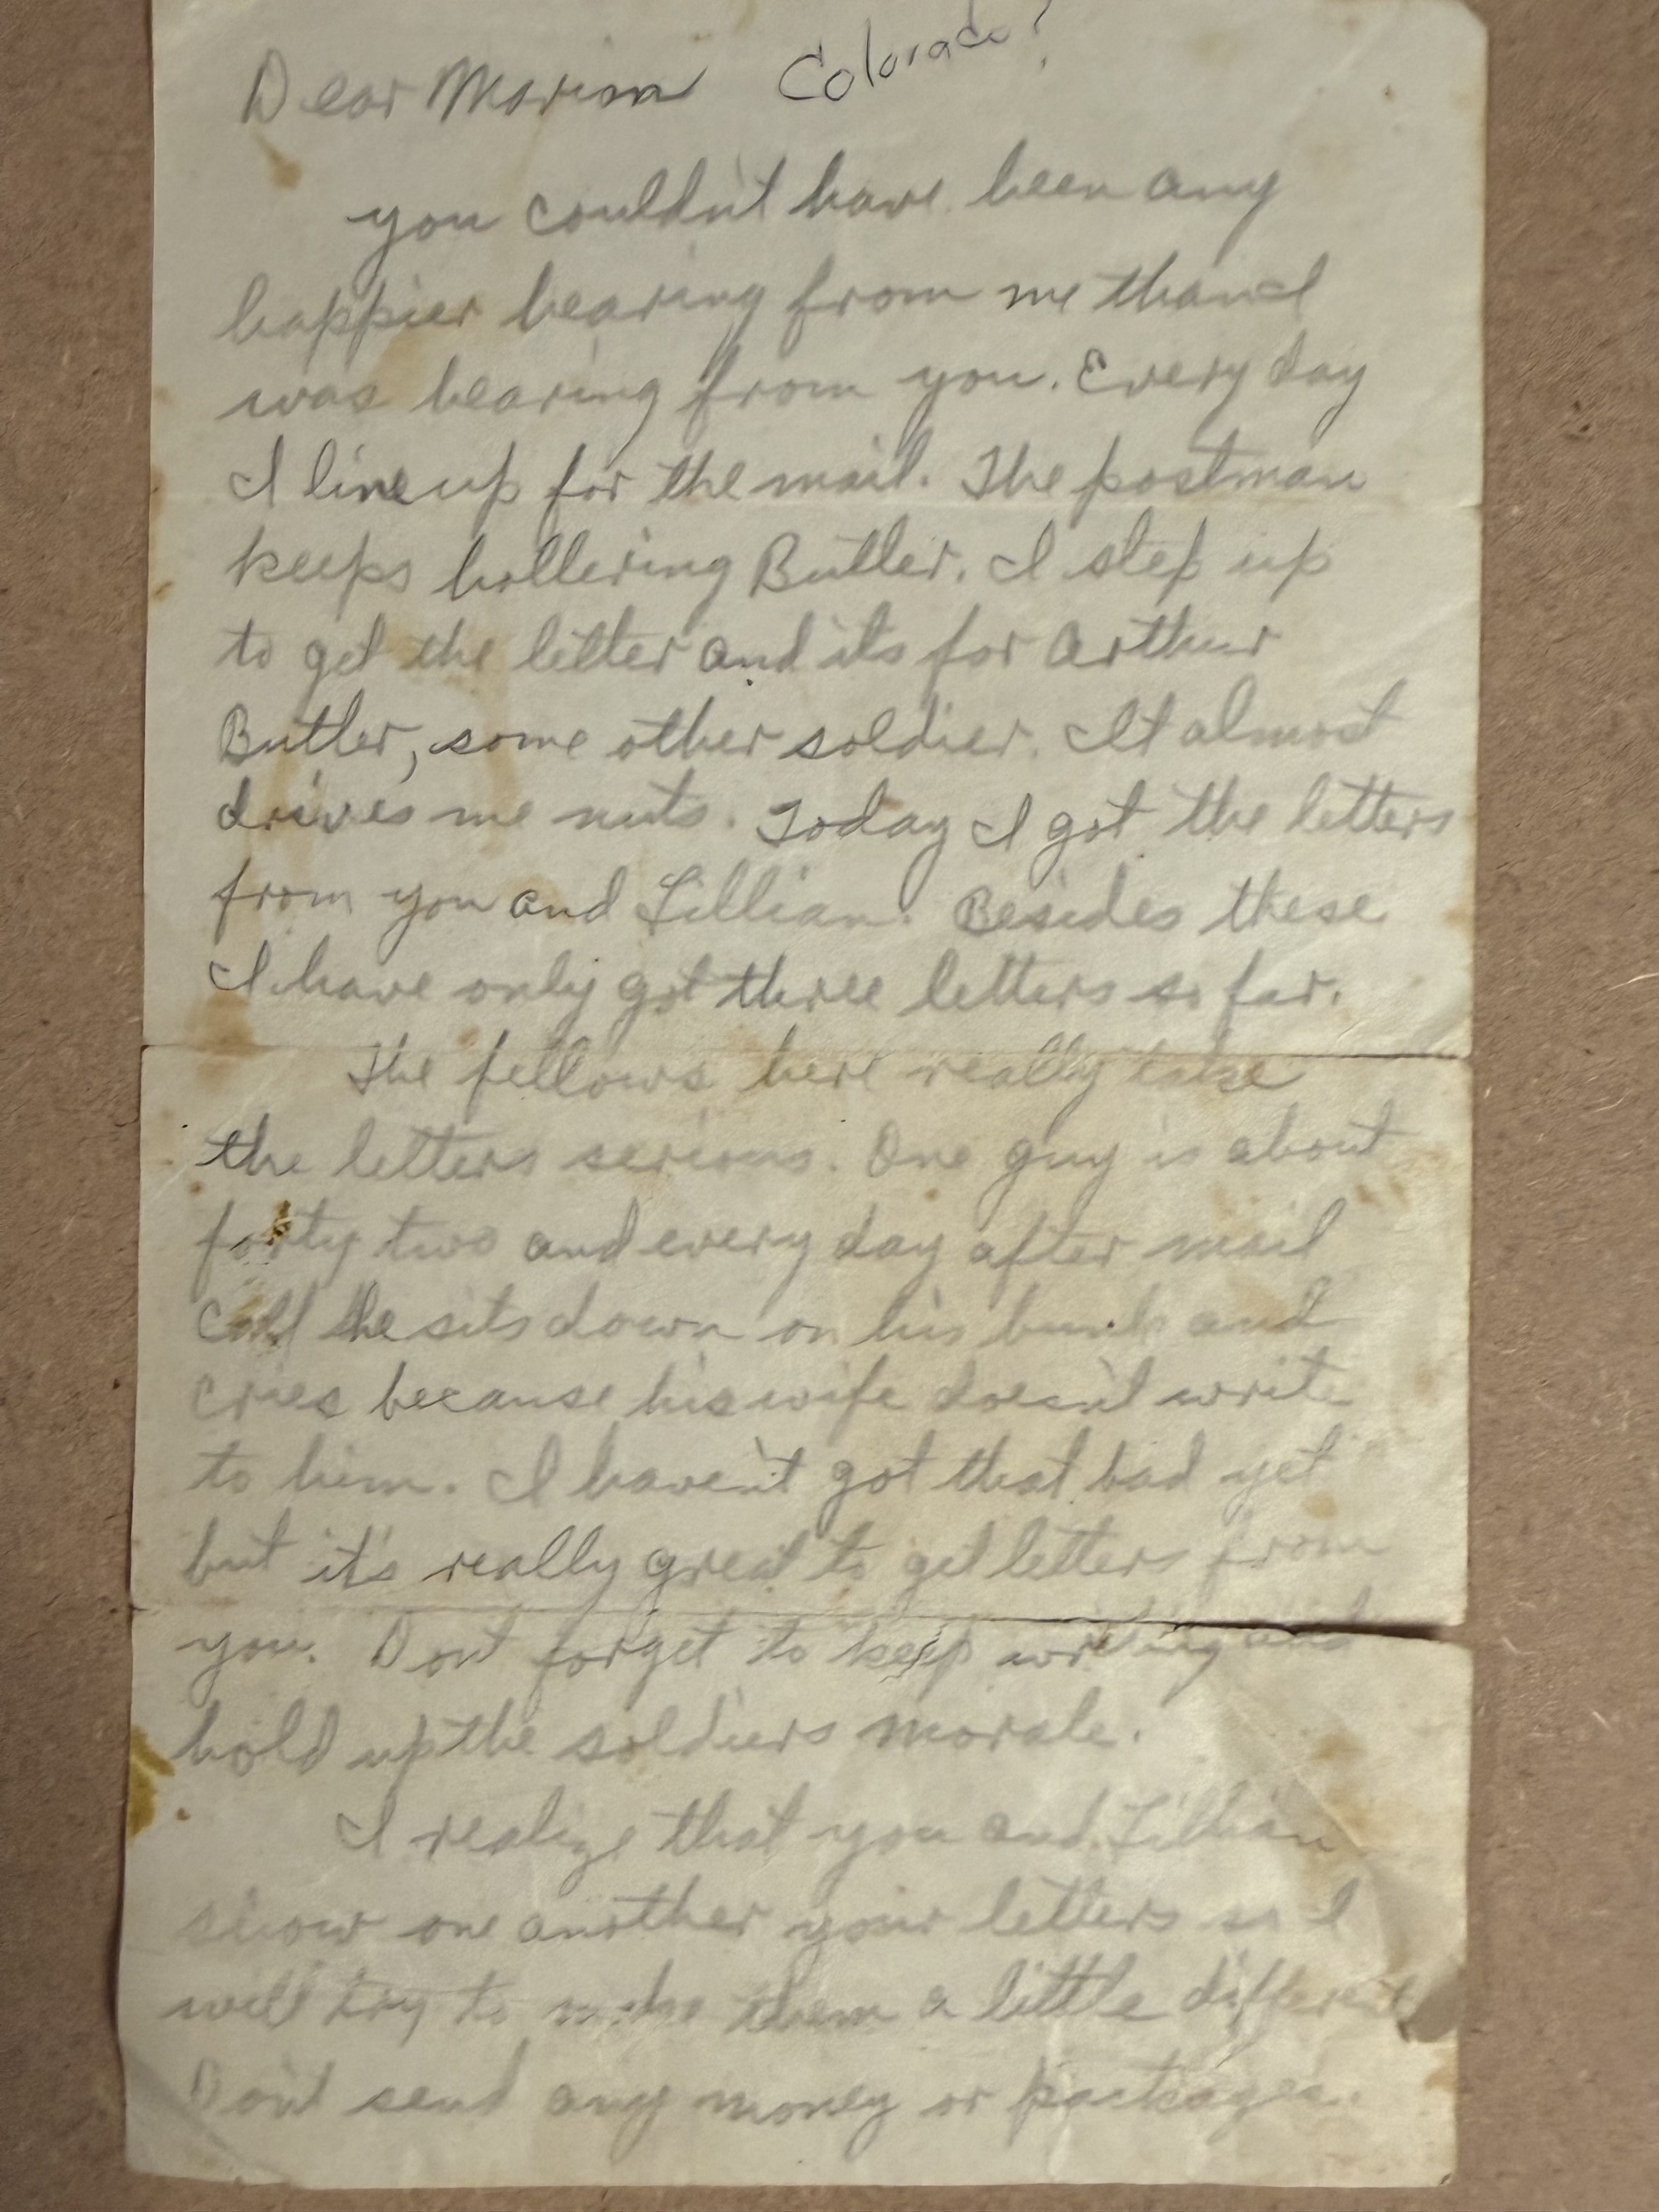 Colorado?
Dear Marion
you couldn't have been any
happier hearing from me than I
was hearing from you. Every day
I line up for the mail. The postman
keeps hollering Butler. I step up
to get the letter and its for Arthur
Butler, some other soldier. It almost
drives me nuts. Today I got the letters
from you and Lillian. Besides these
I have only got three letters so far.
The fellows here really take
the letters serious. One guy is about
forty two and every day after mail
call he sits down on his bunk and
cries because his wife doesn't write
to him. I haven't got that bad yet
but it's really great to get letters from
you. Dont forget to keep writing and
hold up the soldiers morale.
I realize that you and Lillian
show one another your letters so I
will try to make them a little different
Don't send any money or packages.